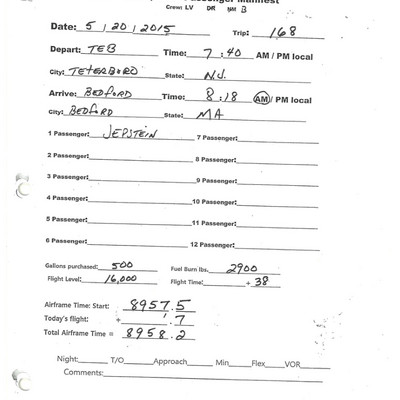 Passenger Manifest
Crew: LV DR NM B
Date: 5/20/2015 Trip: 168
Depart: TEB Time: 7:40 AM / PM local
City: TETERBORO State: N.J.
Arrive: BEDFORD Time: 8:18 AM / PM local
City: BEDFORD State: MA
1 Passenger: JEPSTEIN 7 Passenger:
2 Passenger: 8 Passenger:
3 Passenger: 9 Passenger:
4 Passenger: 10 Passenger:
5 Passenger: 11 Passenger:
6 Passenger: 12 Passenger:
Gallons purchased: 500 Fuel Burn lbs. 2900
Flight Level: 16,000 Flight Time: + 38
Airframe Time: Start: 8957.5
Today's flight: + .7
Total Airframe Time = 8958.2
Night: T/O Approach Min Flex VOR
Comments: